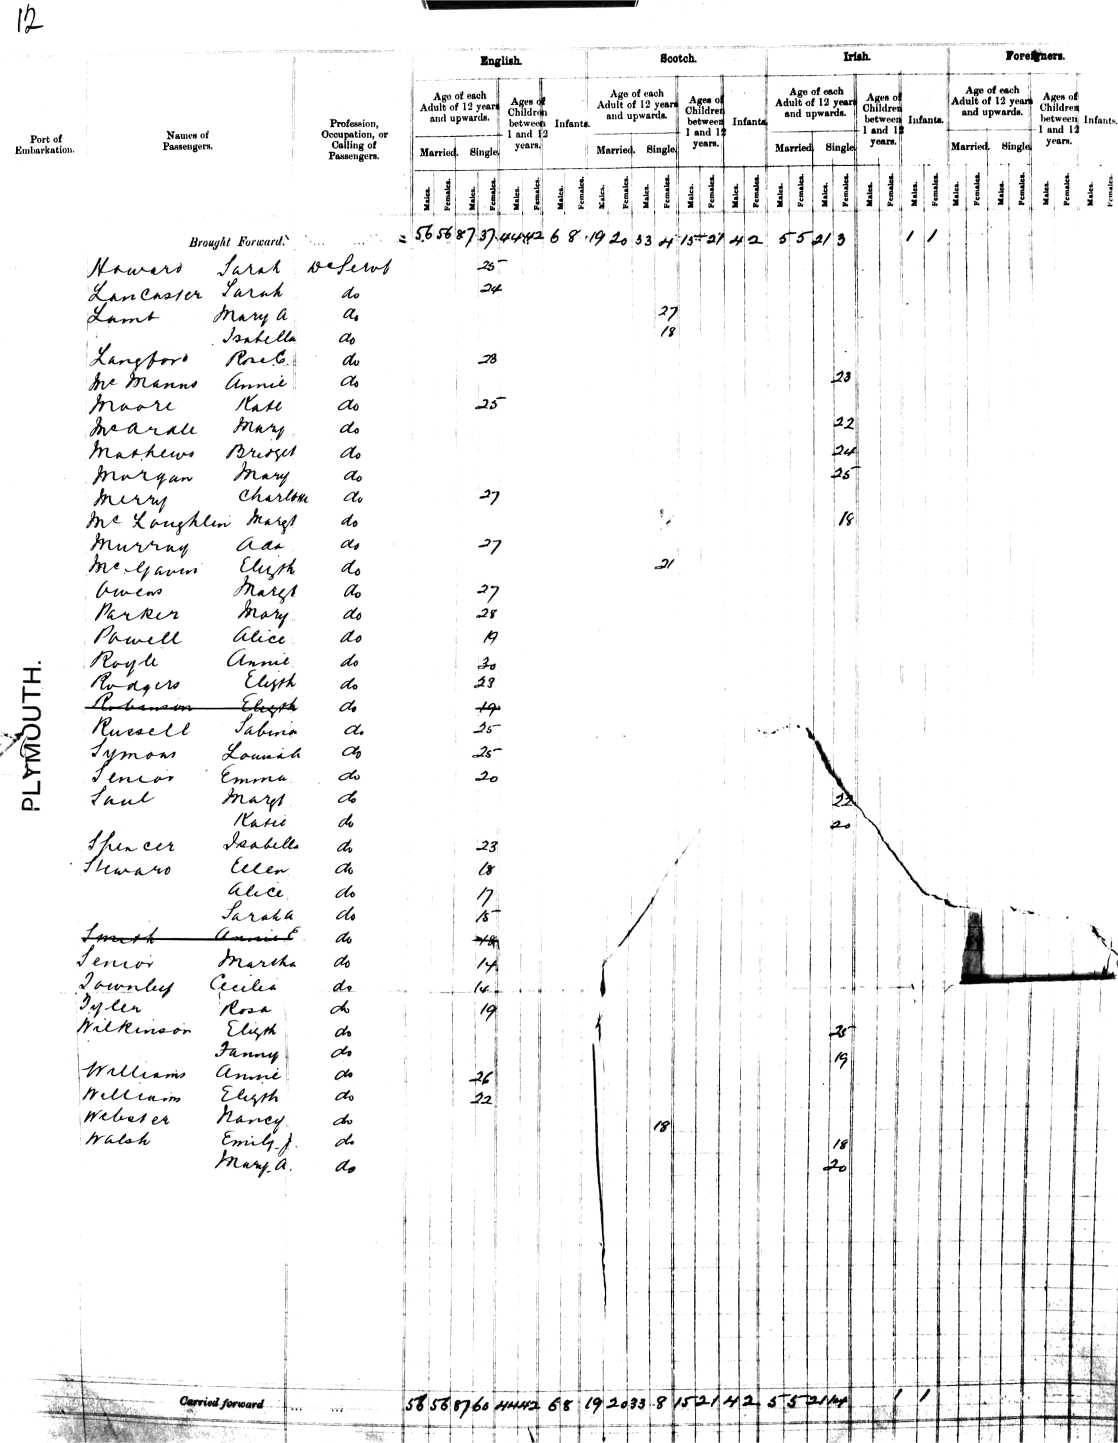 12
English. Scotch. Irish. Foreigners.
Port of Embarkation. Names of Passengers. Profession, Occupation, or Calling of Passengers. Age of each Adult of 12 years and upwards. Ages of Children between 1 and 12 years. Infants. Age of each Adult of 12 years and upwards. Ages of Children between 1 and 12 years. Infants. Age of each Adult of 12 years and upwards. Ages of Children between 1 and 12 years. Infants. Age of each Adult of 12 years and upwards. Ages of Children between 1 and 12 years. Infants.
Married. Single. Married. Single. Married. Single. Married. Single.
Males. Females. Males. Females. Males. Females. Males. Females. Males. Females. Males. Females. Males. Females. Males. Females. Males. Females. Males. Females. Males. Females. Males. Females. Males. Females. Males. Females. Males. Females. Males. Females.
Brought Forward. ... ... = 56 56 87 37 44 42 6 8 19 20 33 4 15 21 4 2 5 5 21 3 1 1
Howard Sarah Do Servt 25
Lancaster Sarah do 24
Lamb Mary A do 27
Isabella do 18
Langford Rose E. do 23
Mc Manns Annie do 23
Moore Kate do 25
McArdle Mary do 22
Mathews Bridget do 24
Morgan Mary do 25
Merry Charlotte do 27
Mc Loughlin Margt do 18
Murray Ada do 27
McGavin Elizth do 21
Owens Margt do 27
Parker Mary do 28
Powell Alice do 19
Royle Annie do 30
Rodgers Elizth do 23
Robinson Elizth do 19
Russell Sabina do 25
PLYMOUTH.
Symons Louisah do 25
Senior Emma do 20
Saul Margt do 22
Katie do 20
Spencer Isabella do 23
Steward Ellen do 18
Alice do 17
Sarah A do 15
Smith Annie E do 18
Senior Martha do 14
Townley Cecilia do 14
Tyler Rosa do 19
Wilkinson Elizth do 25
Fanny do 19
Williams Annie do 26
William Elizth do 22
Webster Nancy do 18
Walsh Emily J. do 18
Mary A. do 20
Carried forward ... ... 56 56 87 60 44 42 6 8 19 20 33 8 15 21 4 2 5 5 21 14 1 1